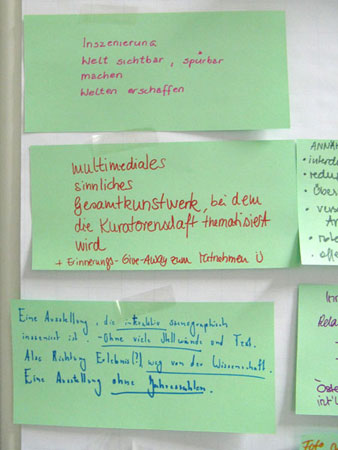 Inszenierung
Welt sichtbar, spürbar
machen
Welten erschaffen
multimediales
sinnliches
Gesamtkunstwerk, bei dem
die Kuratorenschaft thematisiert
wird
+ Erinnerungs-Give-Away zum Mitnehmen Ü
Eine Ausstellung, die interaktiv szenographisch
inszeniert ist. - Ohne viele Stellwände und Text.
Also Richtung Erlebnis(?) weg von der Wissenschaft.
Eine Ausstellung ohne Jahreszahlen.
ANNA
• interd
• redu
• Über
• vers
• offe
In
Rela
Öste
int'l
Foto